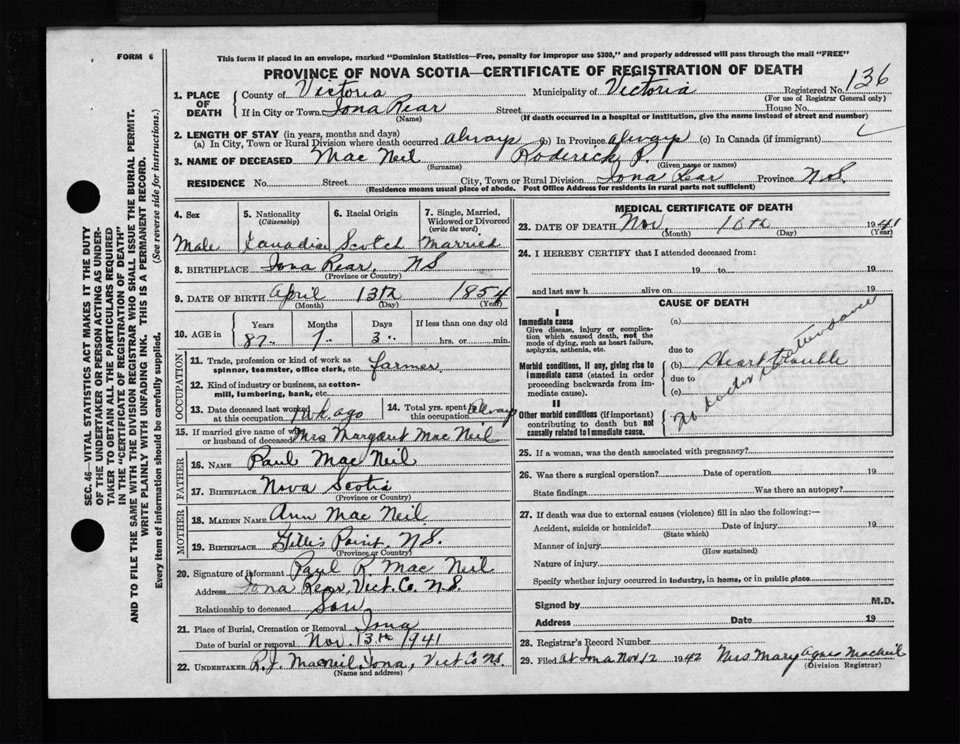 FORM 6
This form if placed in an envelope, marked "Dominion Statistics—Free, penalty for improper use $300," and properly addressed will pass through the mail "FREE"
PROVINCE OF NOVA SCOTIA—CERTIFICATE OF REGISTRATION OF DEATH
1. PLACE OF DEATH
County of Victoria Municipality of Victoria Registered No. 136
(For use of Registrar General only)
If in City or Town Iona Rear Street House No.
(Name) (If death occurred in a hospital or institution, give the name instead of street and number)
2. LENGTH OF STAY (in years, months and days)
(a) In City, Town or Rural Division where death occurred always (b) In Province always (c) In Canada (if immigrant)
3. NAME OF DECEASED Mac Neil Roderick J.
(Surname) (Given name or names)
RESIDENCE No. Street City, Town or Rural Division Iona Rear Province N.S.
(Residence means usual place of abode. Post Office Address for residents in rural parts not sufficient)
4. Sex 5. Nationality (Citizenship) 6. Racial Origin 7. Single, Married, Widowed or Divorced (write the word)
Male Canadian Scotch Married
8. BIRTHPLACE Iona Rear, NS
(Province or Country)
9. DATE OF BIRTH April 13th 1854
(Month) (Day) (Year)
10. AGE in Years Months Days If less than one day old
87 3 hrs. or min.
OCCUPATION
11. Trade, profession or kind of work as spinner, teamster, office clerk, etc. farmer
12. Kind of industry or business, as cotton-mill, lumbering, bank, etc.
13. Date deceased last worked at this occupation ago
14. Total yrs. spent in this occupation Always
15. If married give name of wife or husband of deceased Mrs Margaret Mac Neil
FATHER
16. NAME Paul Mac Neil
17. BIRTHPLACE Nova Scotia
(Province or Country)
MOTHER
18. MAIDEN NAME Ann Mac Neil
19. BIRTHPLACE Gillis Point, N.S.
(Province or Country)
20. Signature of informant Paul R. Mac Neil
Address Iona Rear, Vict. Co. N.S.
Relationship to deceased Son
21. Place of Burial, Cremation or Removal Iona
Date of burial or removal Nov. 13th 1941
22. UNDERTAKER R. J. MacNeil, Iona, Vict Co NS.
(Name and address)
MEDICAL CERTIFICATE OF DEATH
23. DATE OF DEATH Nov, 16th 1941
(Month) (Day) (Year)
24. I HEREBY CERTIFY that I attended deceased from:
19 to 19
and last saw h alive on 19
CAUSE OF DEATH
I
Immediate cause
Give disease, injury or complication which caused death, not the mode of dying, such as heart failure, asphyxia, asthenia, etc.
(a)
due to
Morbid conditions, if any, giving rise to immediate cause (stated in order proceeding backwards from immediate cause).
(b) Heart trouble
due to
(c)
No Doctor Attendance
II
Other morbid conditions (if important) contributing to death but not causally related to immediate cause.
25. If a woman, was the death associated with pregnancy?
26. Was there a surgical operation? Date of operation 19
State findings Was there an autopsy?
27. If death was due to external causes (violence) fill in also the following:—
Accident, suicide or homicide? Date of injury 19
(State which)
Manner of injury
(How sustained)
Nature of injury
Specify whether injury occurred in industry, in home, or in public place
Signed by M.D.
Address Date 19
28. Registrar's Record Number
29. Filed at Iona Nov 12 1942 Mrs Mary Agnes MacNeil
(Division Registrar)
SEC. 46—VITAL STATISTICS ACT MAKES IT THE DUTY
OF THE UNDERTAKER OR PERSON ACTING AS UNDERTAKER TO OBTAIN ALL THE PARTICULARS REQUIRED
IN THE "CERTIFICATE OF REGISTRATION OF DEATH"
AND TO FILE THE SAME WITH THE DIVISION REGISTRAR WHO SHALL ISSUE THE BURIAL PERMIT.
WRITE PLAINLY WITH UNFADING INK. THIS IS A PERMANENT RECORD.
Every item of information should be carefully supplied. (See reverse side for instructions.)